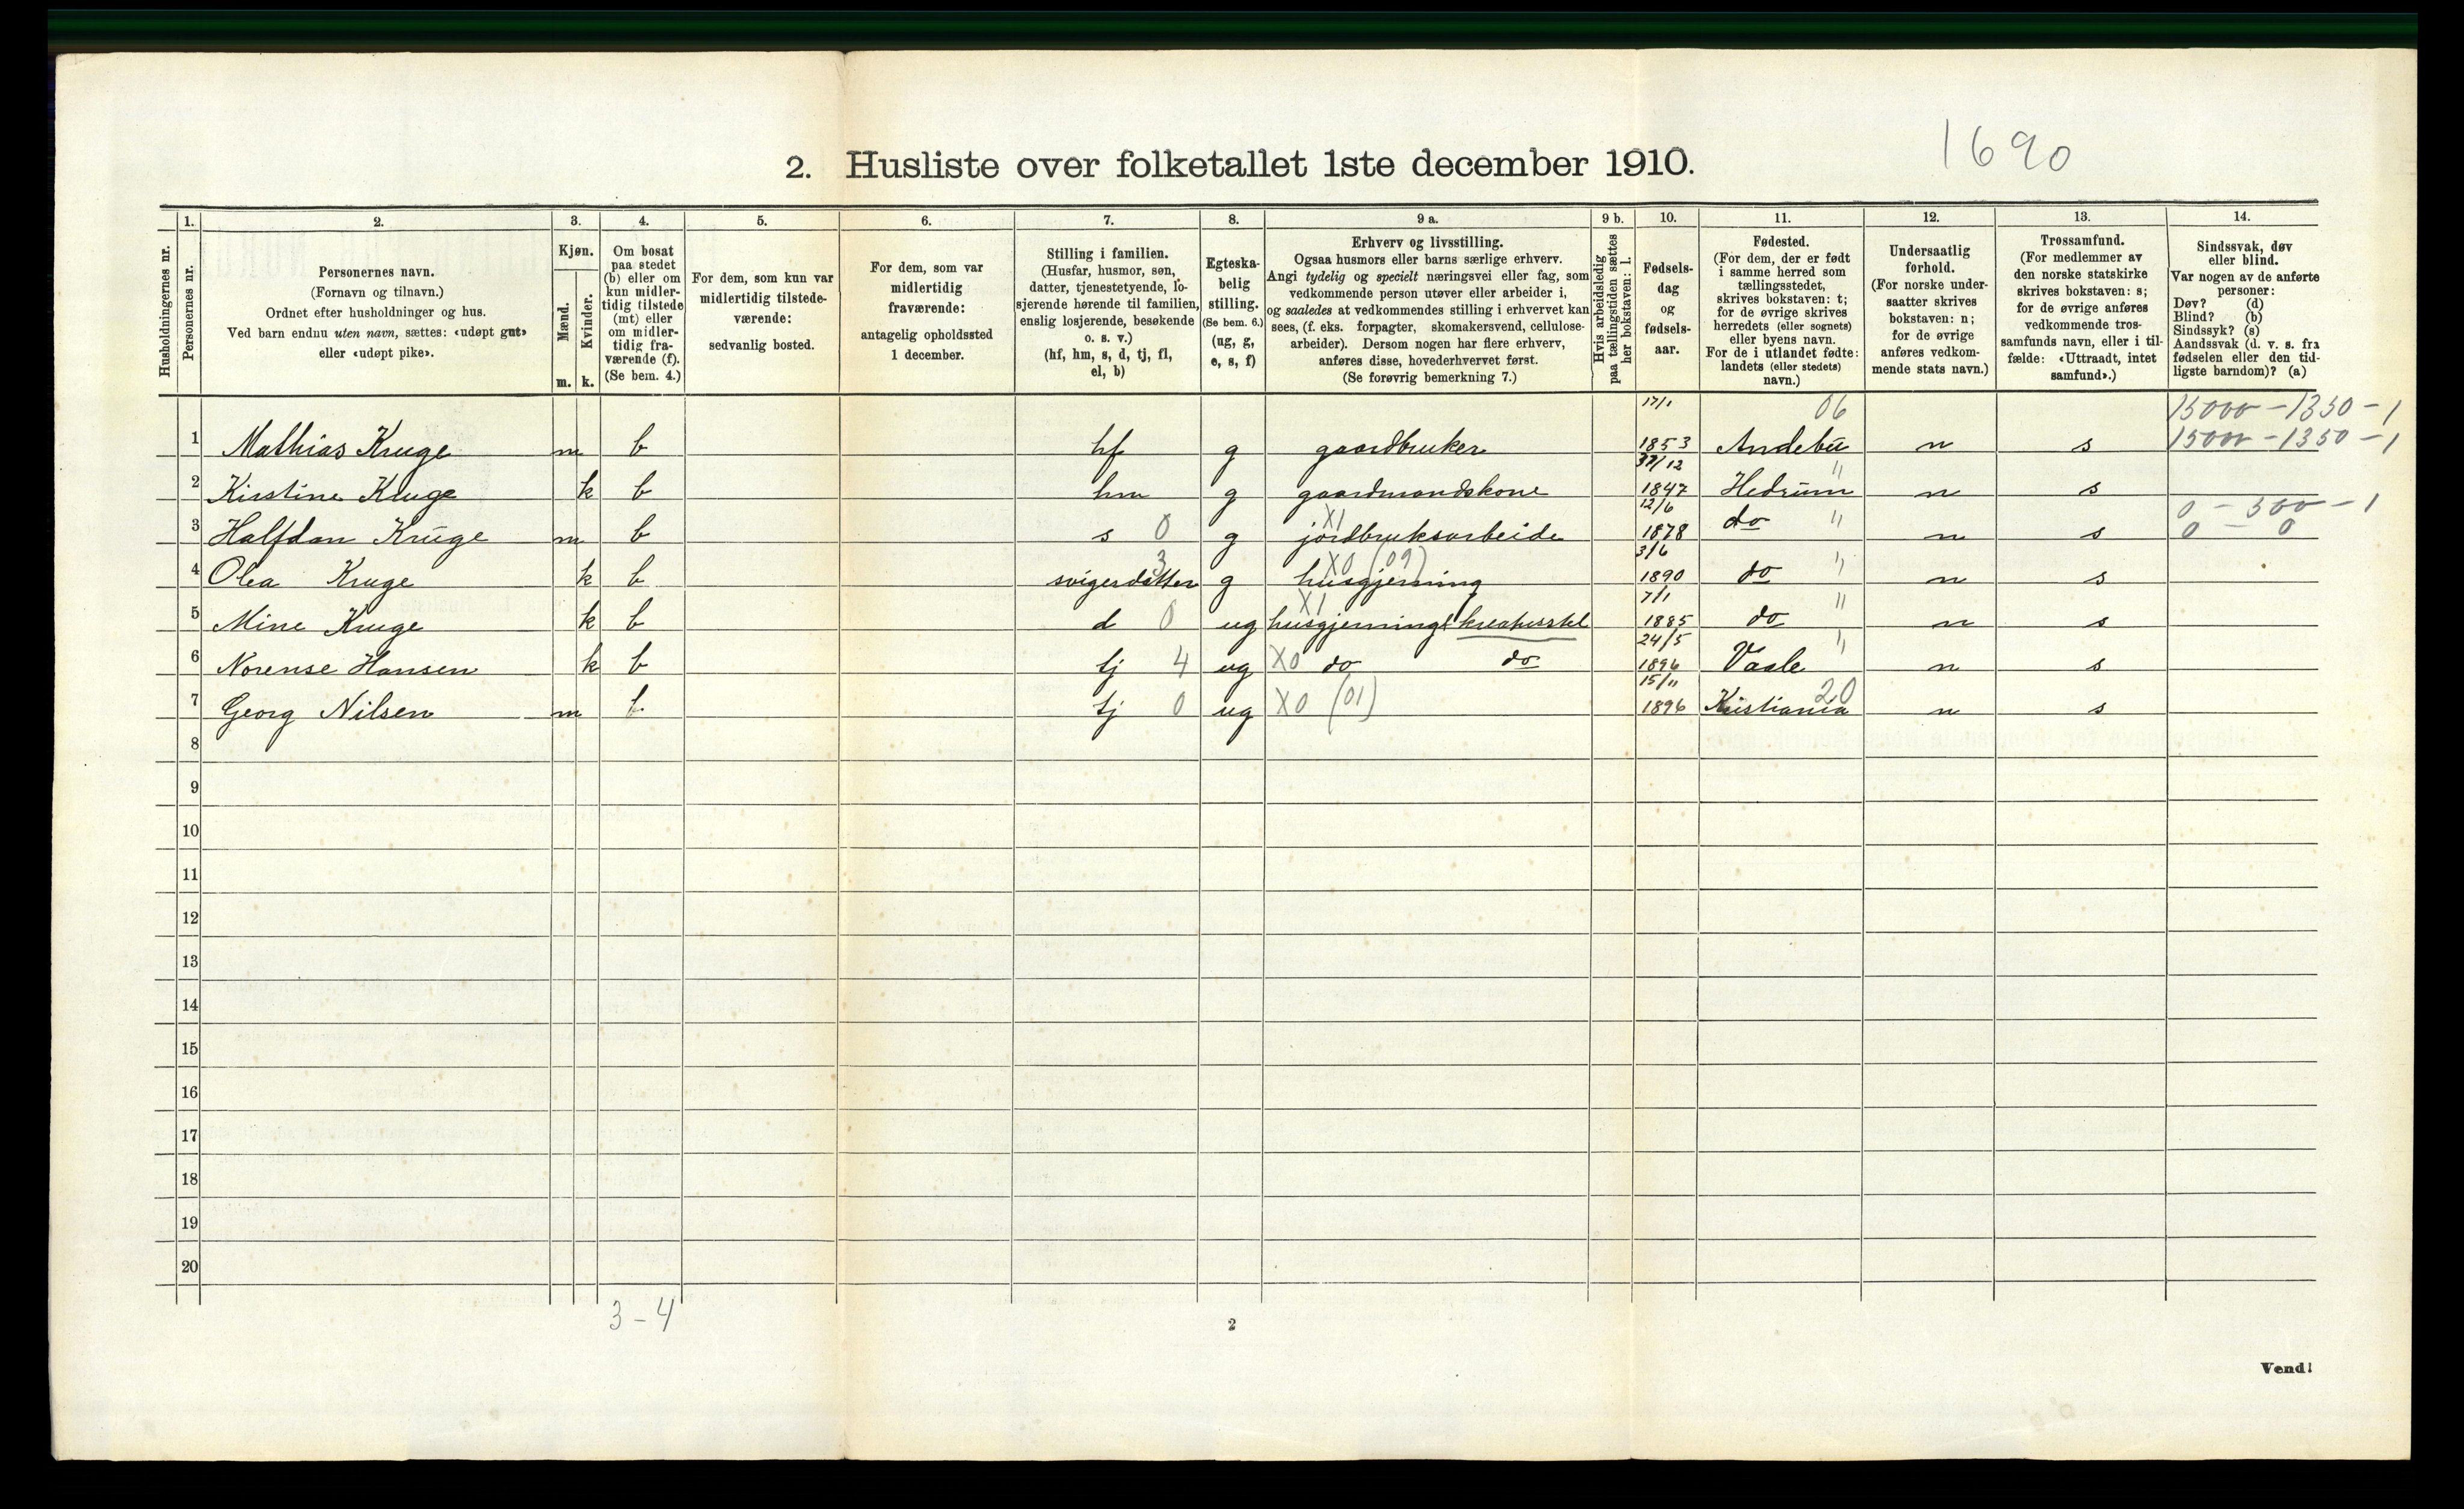 1690
2. Husliste over folketallet 1ste december 1910.
Husholdningernes nr.
1. Personernes nr.
2. Personernes navn.
(Fornavn og tilnavn.)
Ordnet efter husholdninger og hus.
Ved barn endnu uten navn, sættes: «udøpt gut»
eller «udøpt pike».
3. Kjøn.
Mænd. Kvinder.
m. k.
4. Om bosat
paa stedet
(b) eller om
kun midler-
tidig tilstede
(mt) eller
om midler-
tidig fra-
værende (f).
(Se bem. 4.)
5. For dem, som kun var
midlertidig tilstede-
værende:
sedvanlig bosted.
6. For dem, som var
midlertidig
fraværende:
antagelig opholdssted
1 december.
7. Stilling i familien.
(Husfar, husmor, søn,
datter, tjenestetyende, lo-
sjerende hørende til familien,
enslig losjerende, besøkende
o. s. v.)
(hf, hm, s, d, tj, fl,
el, b)
8. Egteska-
belig
stilling.
(Se bem. 6.)
(ug, g,
e, s, f)
9 a. Erhverv og livsstilling.
Ogsaa husmors eller barns særlige erhverv.
Angi tydelig og specielt næringsvei eller fag, som
vedkommende person utøver eller arbeider i,
og saaledes at vedkommendes stilling i erhvervet kan
sees, (f. eks. forpagter, skomakersvend, cellulose-
arbeider). Dersom nogen har flere erhverv,
anføres disse, hovederhvervet først.
(Se forøvrig bemerkning 7.)
9 b. Hvis arbeidsledig
paa tællingstiden sættes
her bokstaven: l.
10. Fødsels-
dag
og
fødsels-
aar.
11. Fødested.
(For dem, der er født
i samme herred som
tællingsstedet,
skrives bokstaven: t;
for de øvrige skrives
herredets (eller sognets)
eller byens navn.
For de i utlandet fødte:
landets (eller stedets)
navn.)
12. Undersaatlig
forhold.
(For norske under-
saatter skrives
bokstaven: n;
for de øvrige
anføres vedkom-
mende stats navn.)
13. Trossamfund.
(For medlemmer av
den norske statskirke
skrives bokstaven: s;
for de øvrige anføres
vedkommende tros-
samfunds navn, eller i til-
fælde: «Uttraadt, intet
samfund».)
14. Sindssvak, døv
eller blind.
Var nogen av de anførte
personer:
Døv? (d)
Blind? (b)
Sindssyk? (s)
Aandssvak (d. v. s. fra
fødselen eller den tid-
ligste barndom)? (a)
17/1 06 15000 - 1350 - 1
1 Mathias Kruge m b hf g gaardbruker 1853 Andebu n s 15000 - 1350 - 1
2 Kirstine Kruge k b hm g gaardmandskone /12 1847 Hedrum " n s
3 Halfdan Kruge m b s 0 g X1 jordbruksarbeide 12/6 1878 do " n s 0 - 500 - 1
0 - 0
4 Olea Kruge k b svigerdatter 3 g X0 (09) husgjerning 3/6 1890 do " n s
5 Mine Kruge k b d 0 ug X1 husgjerning & kreaturstel 7/1 1885 do " n s
6 Norense Hansen k b tj 4 ug X0 do do 24/5 1896 Vaale " n s
7 Georg Nilsen m b tj 0 ug X0 (01) 15/11 1896 Kristiania 20 n s
8
9
10
11
12
13
14
15
16
17
18
19
20
3 - 4
2
Vend!